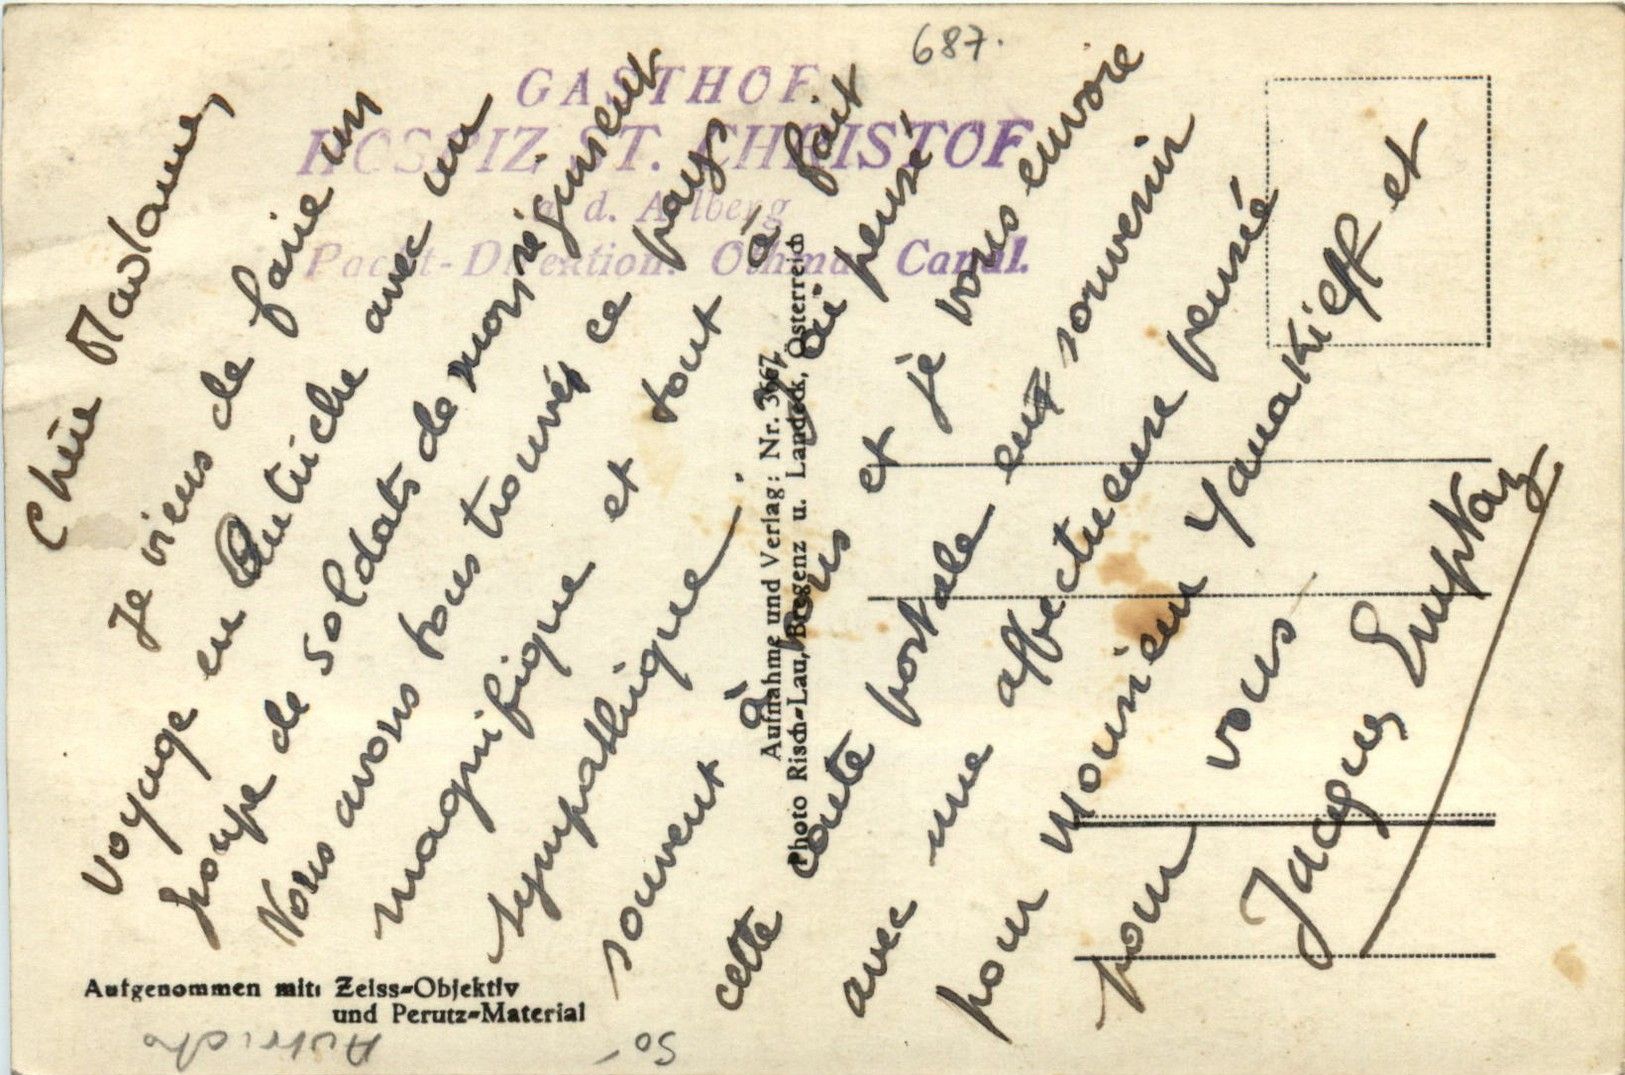 687.
GASTHOF
HOSPIZ ST. CHRISTOF
a. d. Arlberg
Pacht-Direktion: Othmar Canal.
Chère Madame,
Je viens de faire un
voyage en Autriche avec un
groupe de soldats de mon régiment
Nous avons tous trouvés ce pays
magnifique et tout à fait
sympathique. J'ai pensé
souvent à vous et je vous envoie
cette carte postale en souvenir
avec une affectueuse pensée
pour Monsieur Yanakieff et
pour vous
Jacques
Aufnahme und Verlag: Nr. 3667
Photo Risch-Lau, Bregenz u. Landeck, Österreich
Aufgenommen mit: Zeiss-Objektiv
und Perutz-Material
Autriche
50